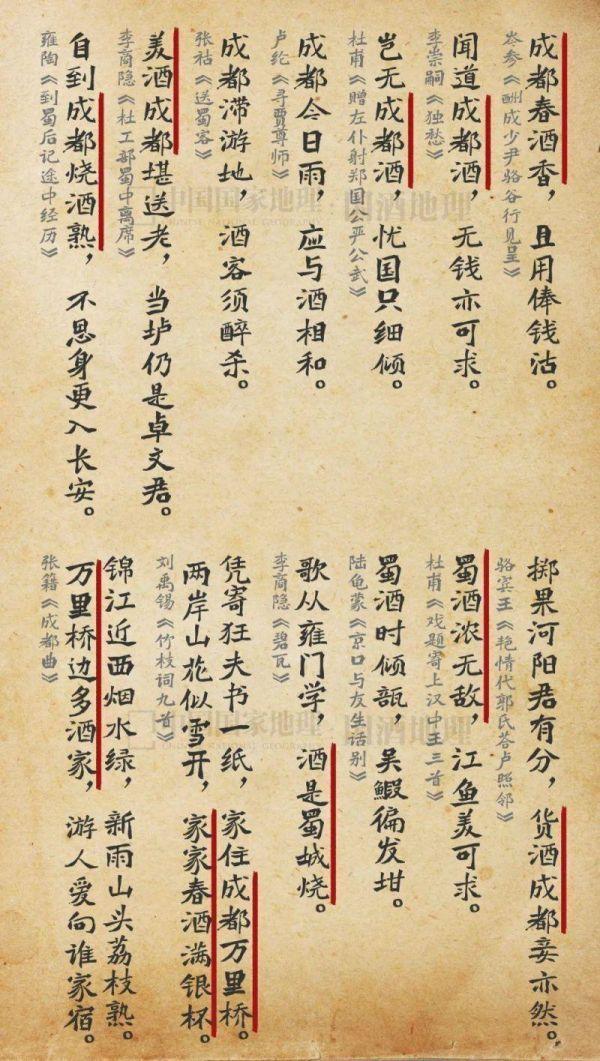 成都春酒香，且用俸钱沽。
岑参《酬成少尹骆谷行见呈》
闻道成都酒，无钱亦可求。
李崇嗣《独愁》
岂无成都酒，忧国只细倾。
杜甫《赠左仆射郑国公严公武》
成都今日雨，应与酒相和。
卢纶《寻贾尊师》
成都滞游地，酒客须醉杀。
张祜《送蜀客》
美酒成都堪送老，当垆仍是卓文君。
李商隐《杜工部蜀中离席》
自到成都烧酒熟，不思身更入长安。
雍陶《到蜀后记途中经历》
掷果河阳君有分，货酒成都妾亦然。
骆宾王《艳情代郭氏荅卢照邻》
蜀酒浓无敌，江鱼美可求。
杜甫《戏题寄上汉中王三首》
蜀酒时倾瓿，吴鰕徧发坩。
陆龟蒙《京口与友生话别》
歌从雍门学，酒是蜀城烧。
李商隐《碧瓦》
凭寄狂夫书一纸，家住成都万里桥。
两岸山花似雪开，家家春酒满银杯。
刘禹锡《竹枝词九首》
锦江近西烟水绿，新雨山头荔枝熟。
万里桥边多酒家，游人爱向谁家宿。
张籍《成都曲》
中国国家地理
酒地理
中国国家地理
酒地理